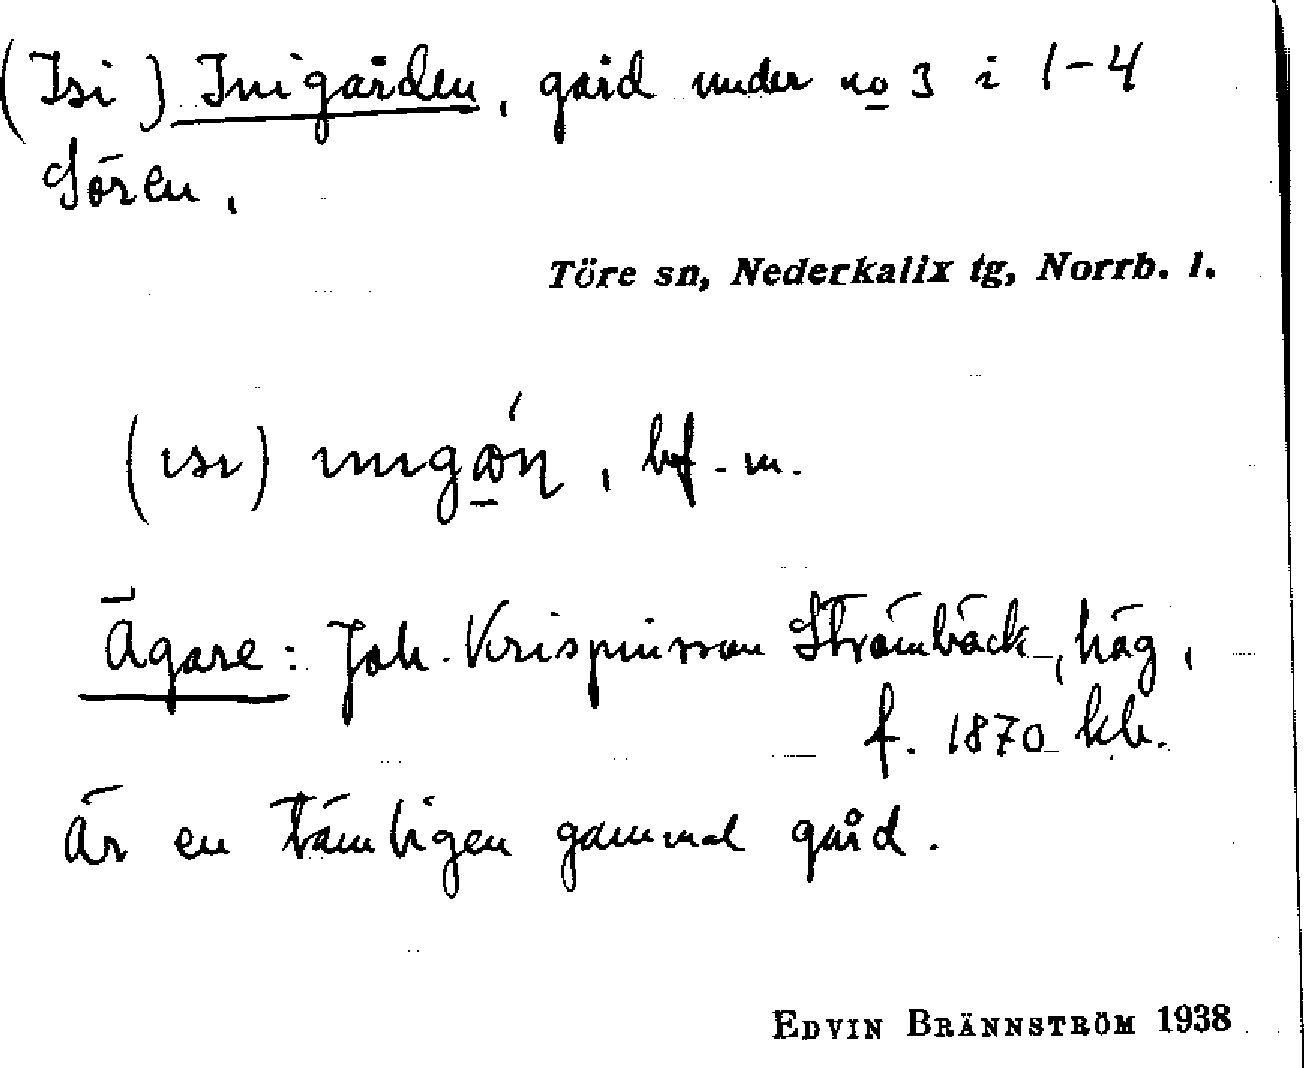 (Isi) Inigården, gård under no 3 i 1-4
Sören.
Töre sn, Nederkalix tg, Norrb. l.
(ısı) ınıgǻn, bf. m.
Ägare: Joh. Krispinsson Strömbäck, häg,
f. 1870 kb.
Är en tämligen gammal gård.
EDVIN BRÄNNSTRÖM 1938